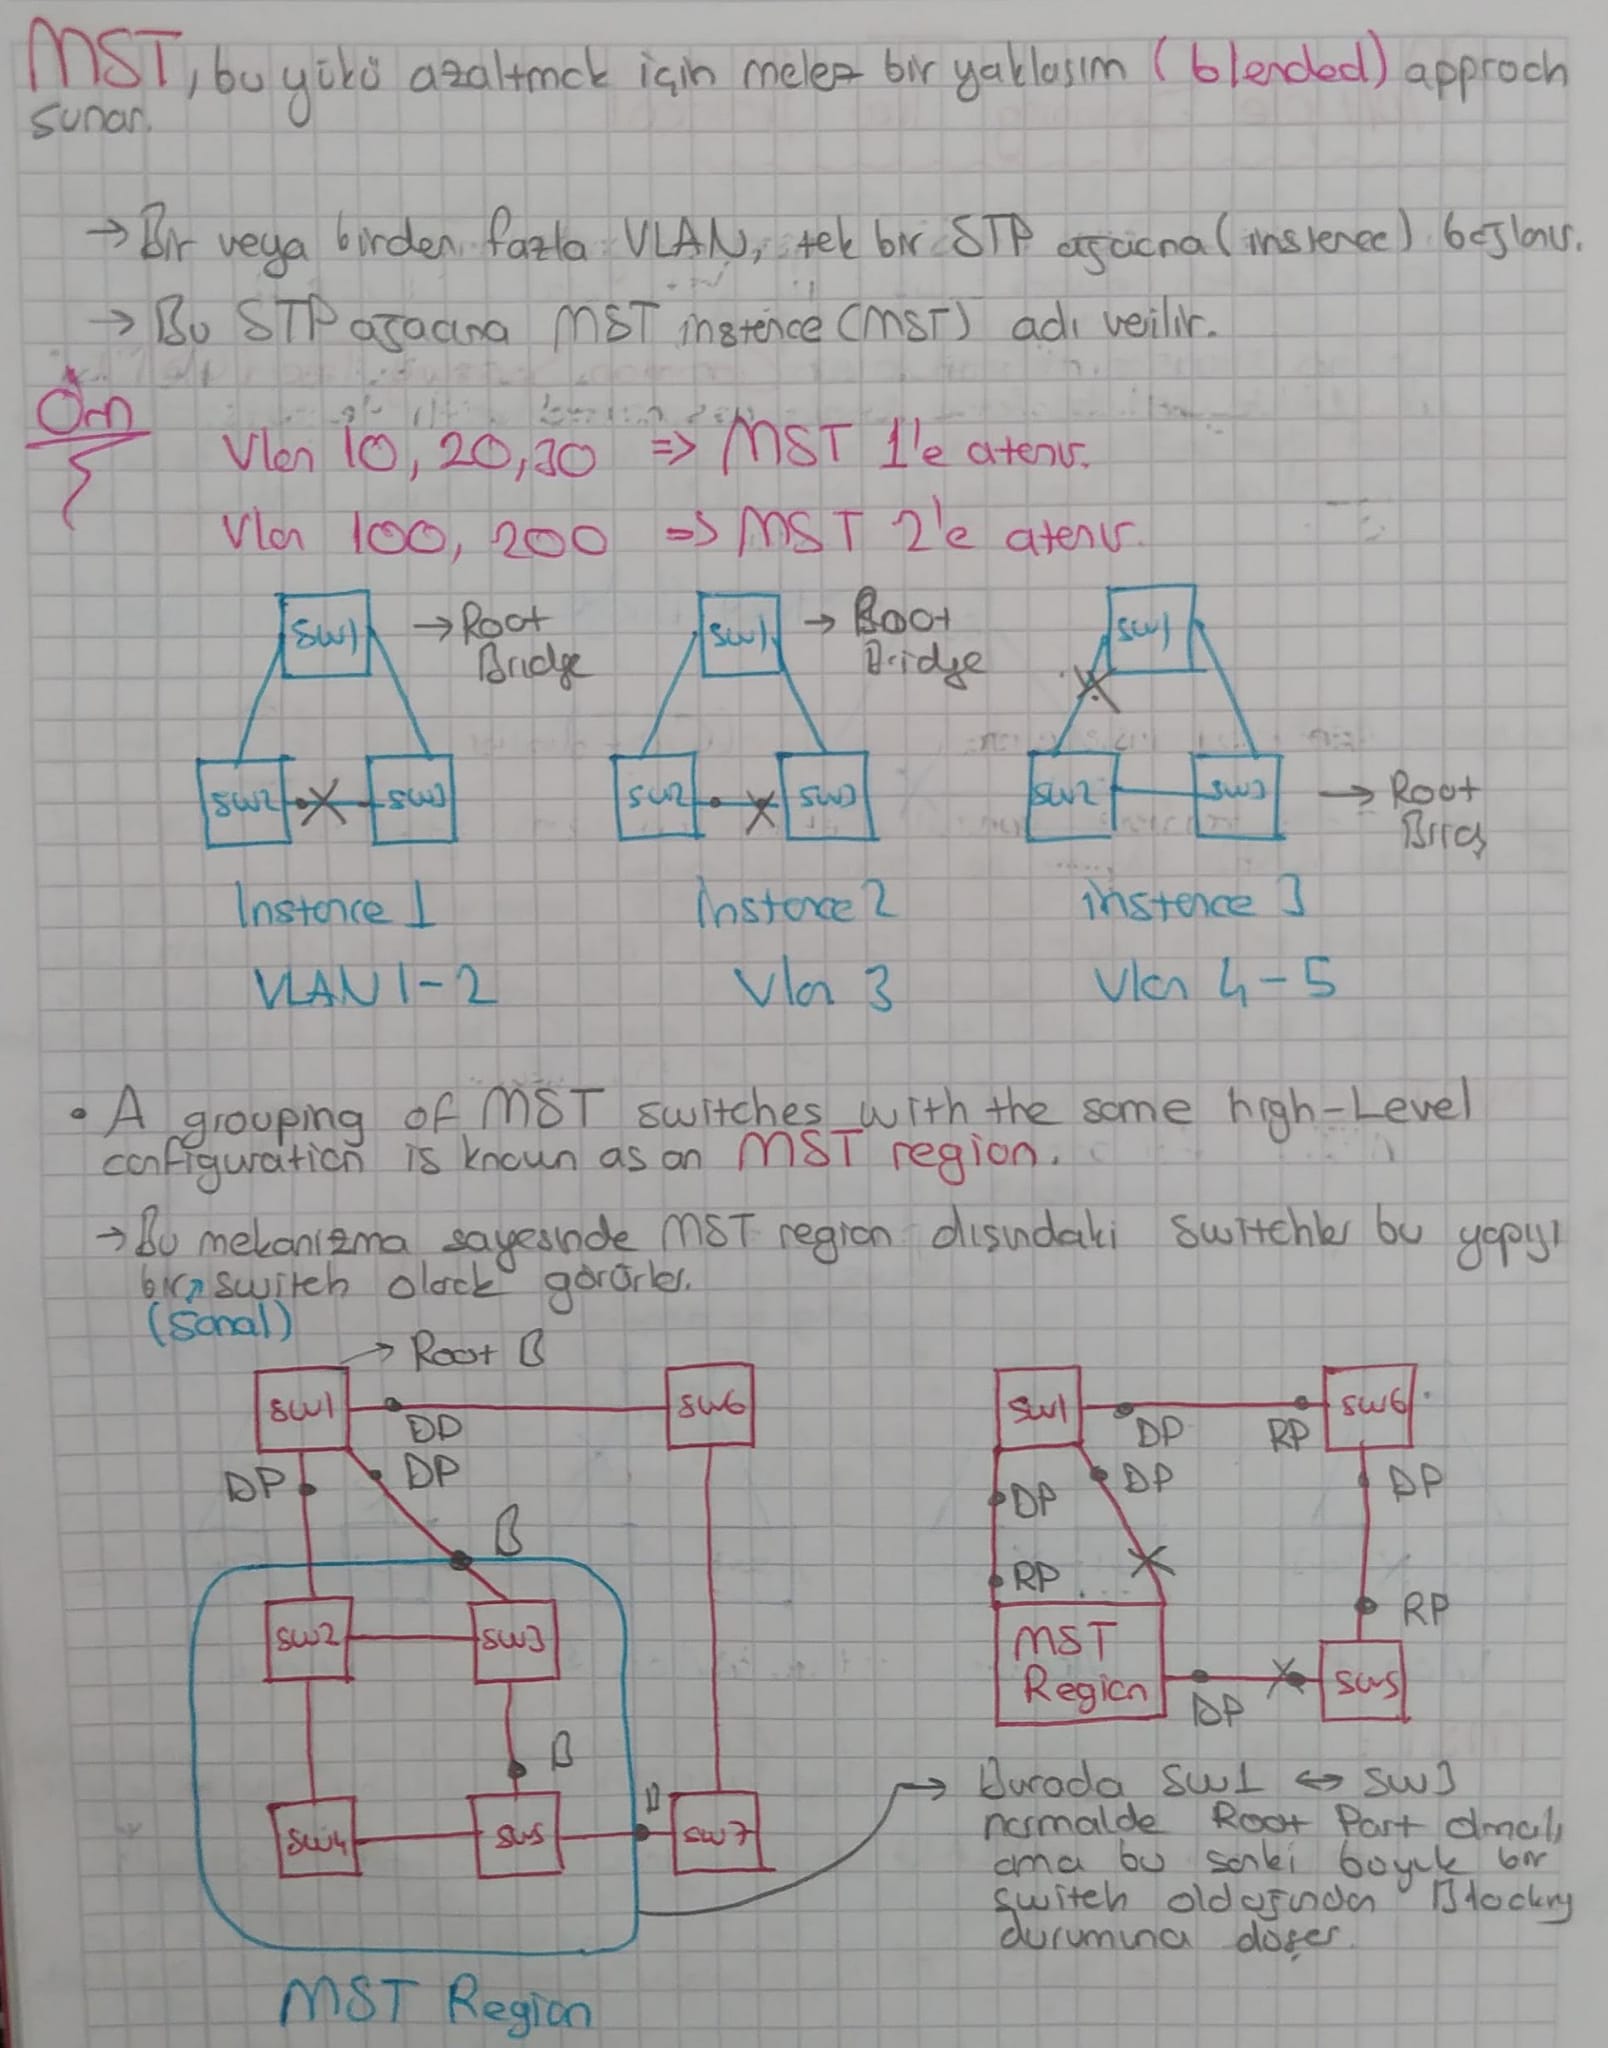 MST, bu yükü azaltmak için melez bir yaklasım (blended) approch
sunar.
→ Bir veya birden fazla VLAN, tek bir STP ağacına (instence) bağlanır.
→ Bu STP ağacına MST instence (MST) adı verilir.
Örn
Vlan 10, 20, 30 => MST 1'e atanır.
Vlan 100, 200 => MST 2'e atanır.
SW1 → Root Bridge
SW2 SW3
Instance 1
VLAN 1-2
SW1 → Root Bridge
SW2 SW3
instance 2
Vlan 3
SW1
SW2 SW3 → Root
instence 3
Vlan 4-5
• A grouping of MST switches with the same high-Level
configuration is known as an MST region.
→ Bu mekanizma sayesinde MST region dısındaki switchler bu yapıyı
bir switch olarak görürler.
(Sanal)
→ Root B
SW1 DP SW6
DP DP
B
SW2 SW3
B
SW4 SW5 SW7
MST Region
SW1 DP RP SW6
DP DP DP
RP RP
MST
Region DP SW5
→ Burada SW1 ↔ SW3
normalde Root Port olmalı
ama bu sanki büyük bir
switch olduğundan Blockıng
durumuna düşer.